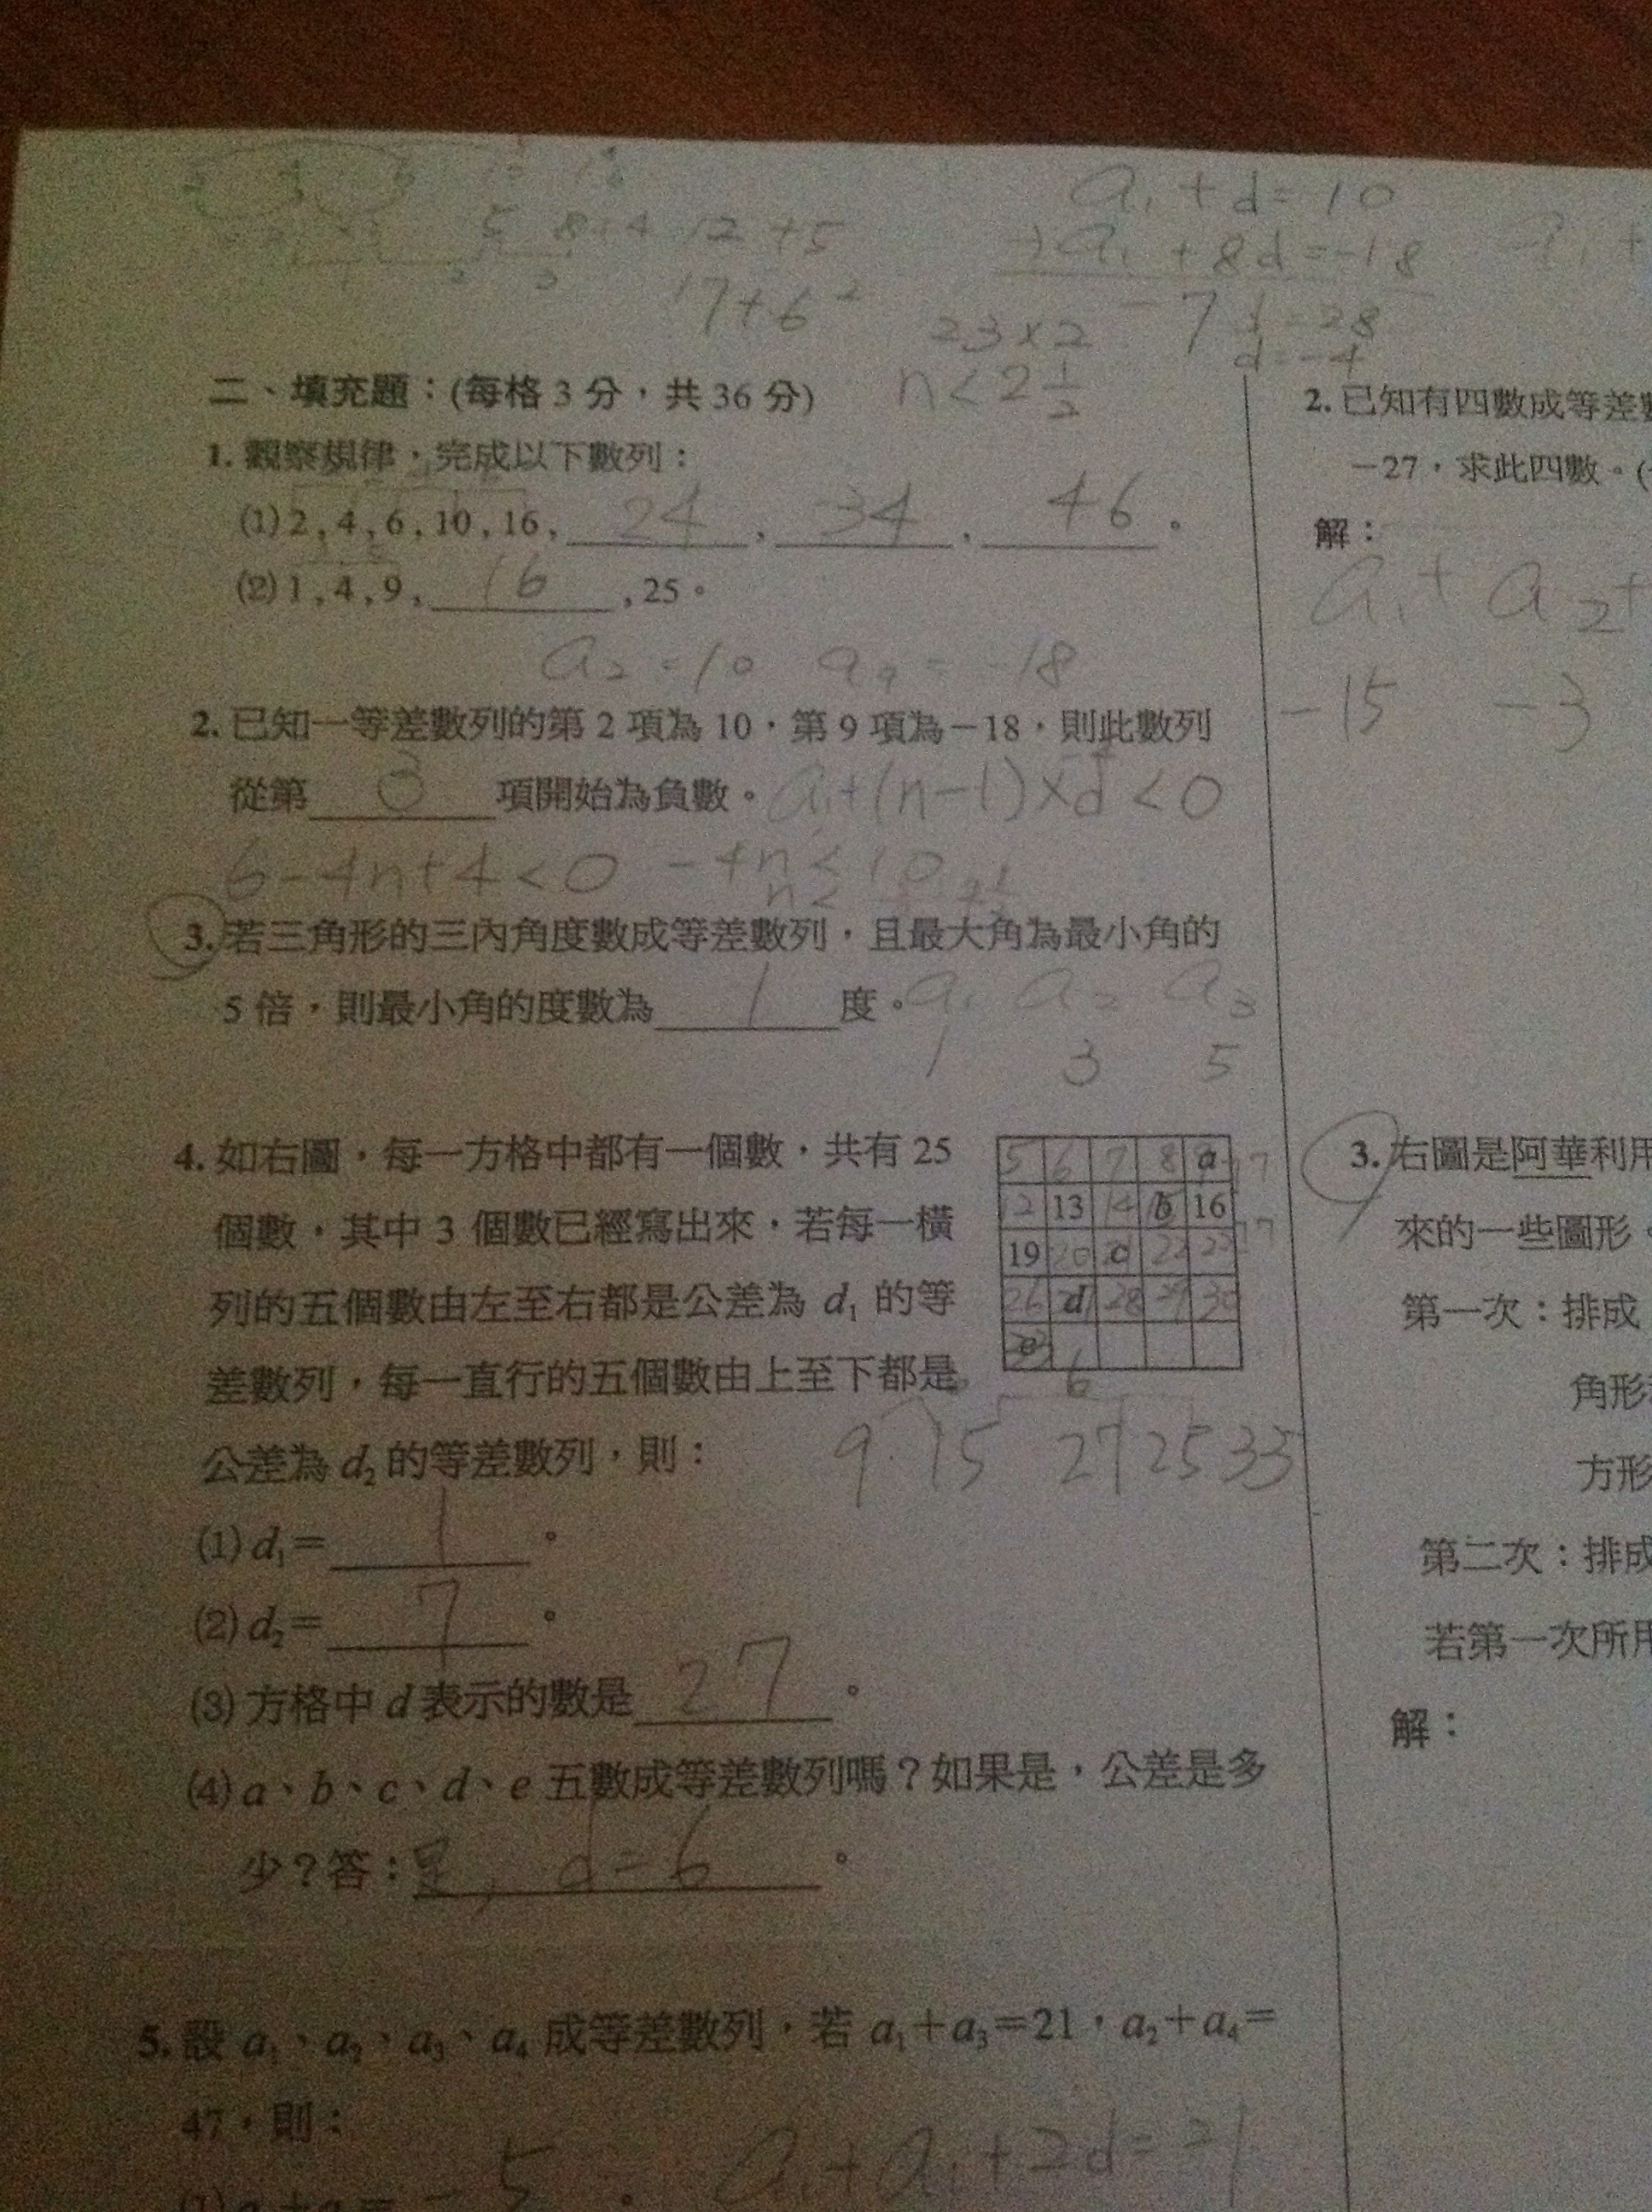 a₁ + d = 10
+) a₁ + 8d = -18
5 8+4 12 +5
17+6
23×2
-7d = 28
d = -4
n < 2 1/2
二、填充題：(每格 3 分，共 36 分)
1. 觀察規律，完成以下數列：
(1) 2 , 4 , 6 , 10 , 16 , 24 , 34 , 46 。
(2) 1 , 4 , 9 , 16 , 25。
a₂ = 10 a₉ = -18
2. 已知一等差數列的第 2 項為 10，第 9 項為－18，則此數列
從第 3 項開始為負數。 a₁+(n-1)×d<0
6-4n+4<0 -4n< 10
n<
3. 若三角形的三內角度數成等差數列，且最大角為最小角的
5 倍，則最小角的度數為 1 度。 a₁ a₂ a₃
1 3 5
4. 如右圖，每一方格中都有一個數，共有 25
個數，其中 3 個數已經寫出來，若每一橫
列的五個數由左至右都是公差為 d₁ 的等
差數列，每一直行的五個數由上至下都是
公差為 d₂ 的等差數列，則：
5 6 7 8 a
12 13 14 b 16
19 20 c 22 23
26 d 28 29 30
e
6
9 15 27 25 33
(1) d₁＝ 1 。
(2) d₂＝ 7 。
(3) 方格中 d 表示的數是 27 。
(4) a、b、c、d、e 五數成等差數列嗎？如果是，公差是多
少？答：是, d=6 。
5. 設 a₁、a₂、a₃、a₄ 成等差數列，若 a₁＋a₃＝21，a₂＋a₄＝
47，則：
5 a₁+a₁+2d=21
2. 已知有四數成等差
－27，求此四數。(
解：
a₁+ a₂+
-15 -3
3. 右圖是阿華利用
來的一些圖形
第一次：排成
角形
方形
第二次：排成
若第一次所用
解：